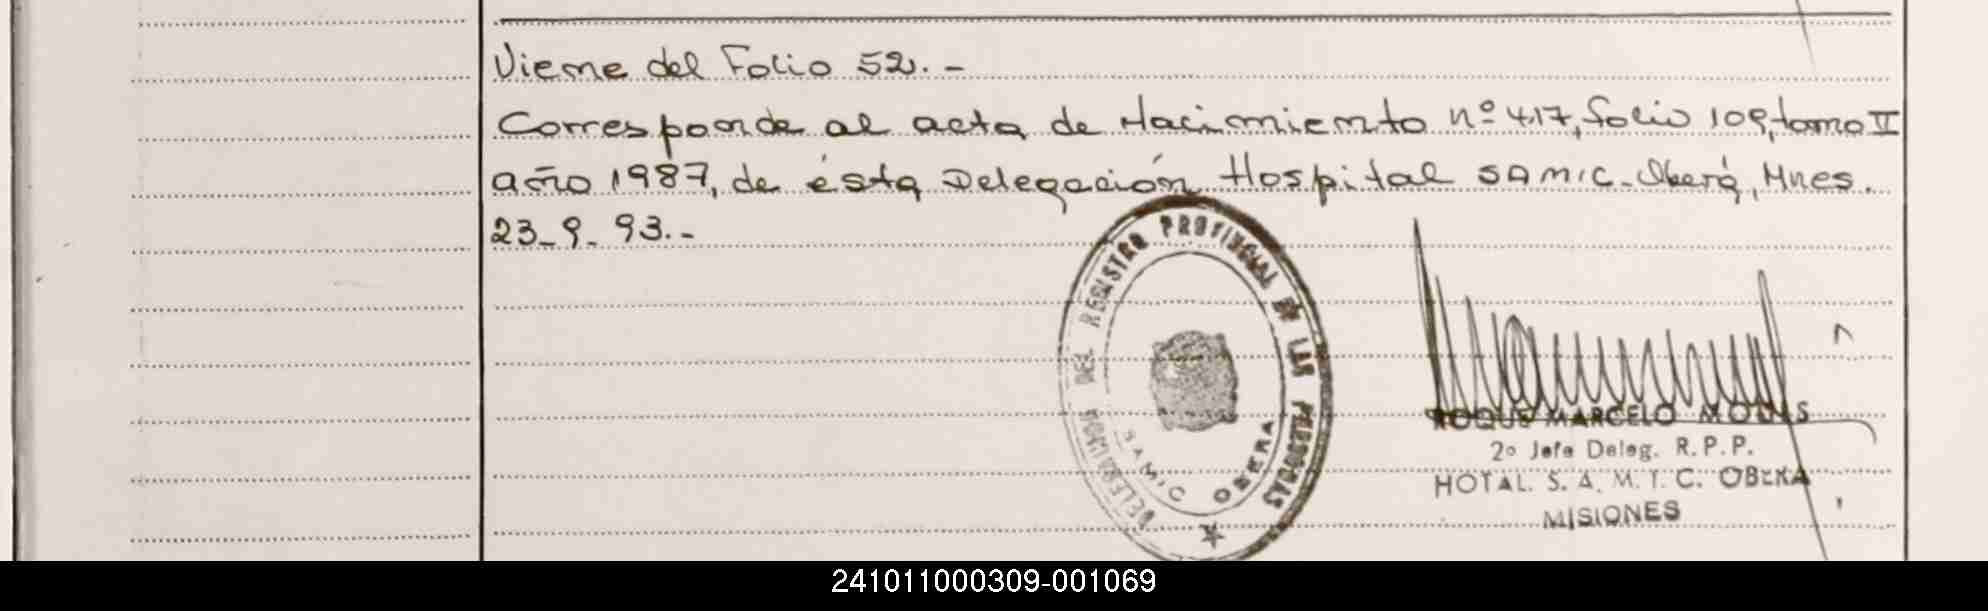 Viene del Folio 52.-
Corresponde al acta de Nacimiento nº 417, folio 109, tomo II
año 1987, de ésta Delegación Hospital SAMIC-Oberá, Mnes.
23-9-93.-
DELEGACION DEL REGISTRO PROVINCIAL DE LAS PERSONAS
SAMIC OBERA
ROQUE MARCELO
2º Jefe Deleg. R.P.P.
HOTAL. S. A. M. I. C. OBERA
MISIONES
241011000309-001069